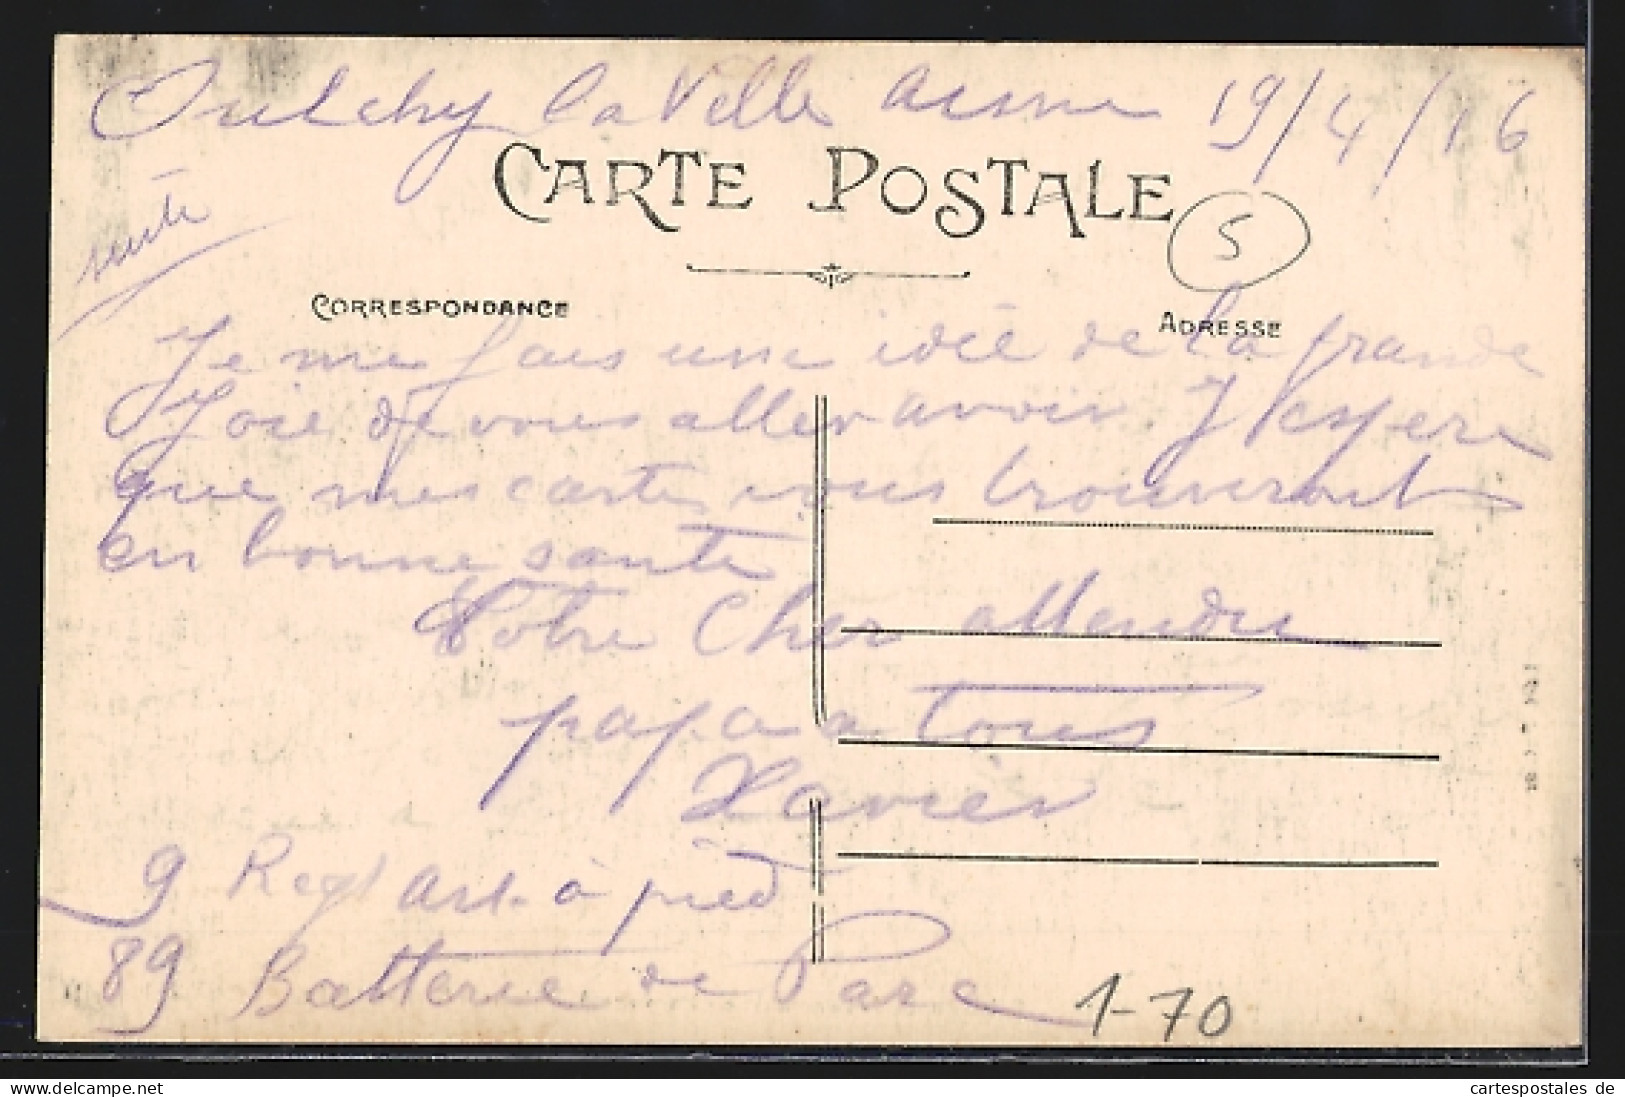 Oulchy la Ville Aisne 19/4/16
CARTE POSTALE
5
suite
CORRESPONDANCE
ADRESSE
Je me fais une idée de la grande
Joie de vous aller avoir. J espere
que mes cartes vous trouveront
en bonne sante
Votre Cher attendu
papa a tous
Xavier
9 Regt Art. à pied
89 Batterie de Parc
1-70
cartespostales de